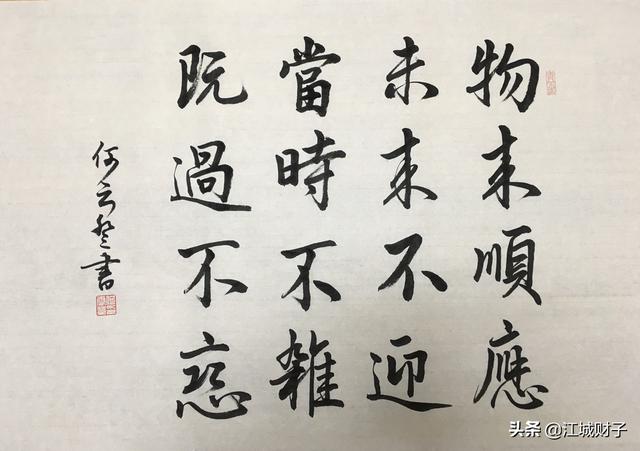 物来順應
未来不迎
當時不雜
既過不恋
何云書
头条 @江城财子